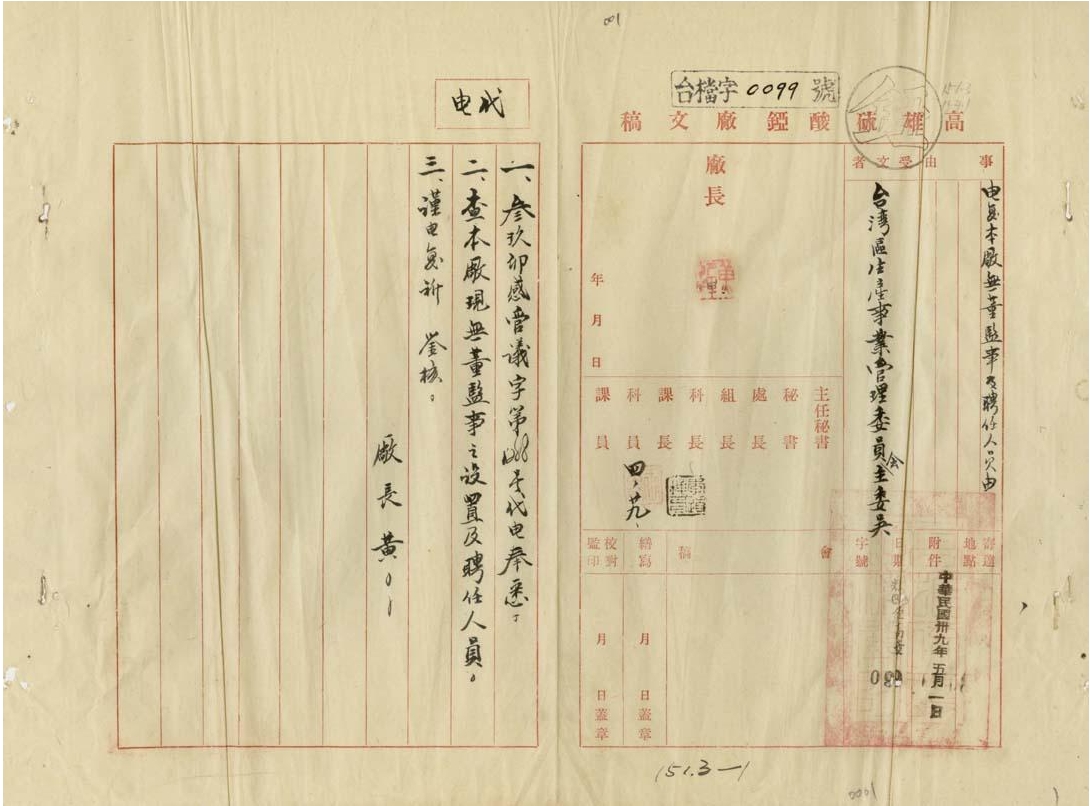 001
台檔字0099號
高雄硫酸錏廠文稿
事由
电复本廠無董監事及聘任人員由
受文者
台灣區生產事業管理委員會主委吳
寄遞地點
附件
中華民國卅九年五月一日
日期
字號
廠長
年月日
主任秘書
秘書
處長
組長
科長
課長
科員
課員
四、廿九、
會
稿
繕寫
校對
監印
月日蓋章
月日蓋章
电代
一、叁玖卯感管議字第號代电奉悉。
二、查本廠現無董監事之設置及聘任人員。
三、謹电复祈 鉴核。
廠長黃
151.3—1
0001